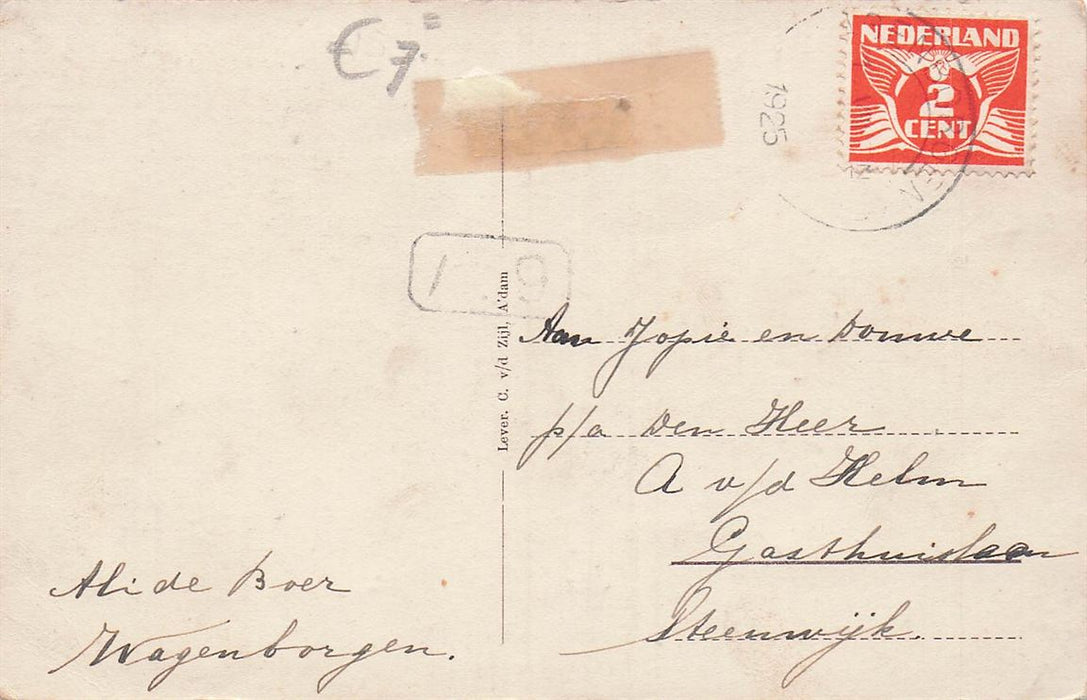 € 7=
NEDERLAND
2
CENT
1925
Lever. C. v/d Zijl, A'dam
Aan Jopie en Douwe
p/a Den Heer
A v/d Helm
Gasthuislaan
Steenwijk.
Ali de Boer
Wagenborgen.